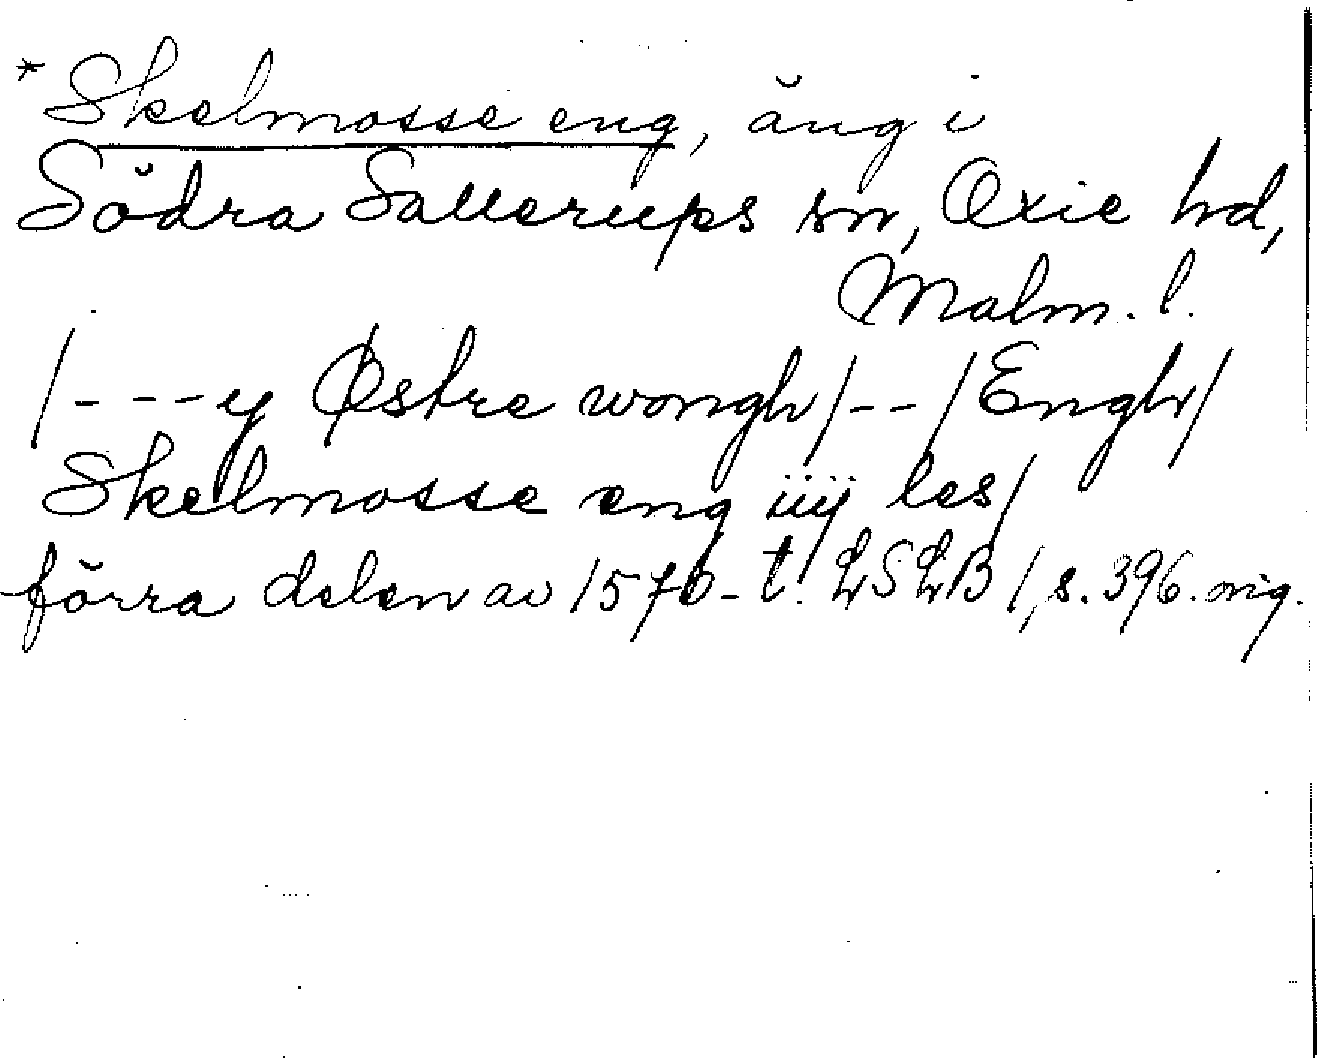 *Skelmosse eng, äng i
Södra Sallerups sn, Oxie hd,
Malm. l.
/- - - y Østre wongh/- - /Engh/
Skelmosse eng iiij les/
förra delen av 1570-t. LSLB 1, s. 396. orig.